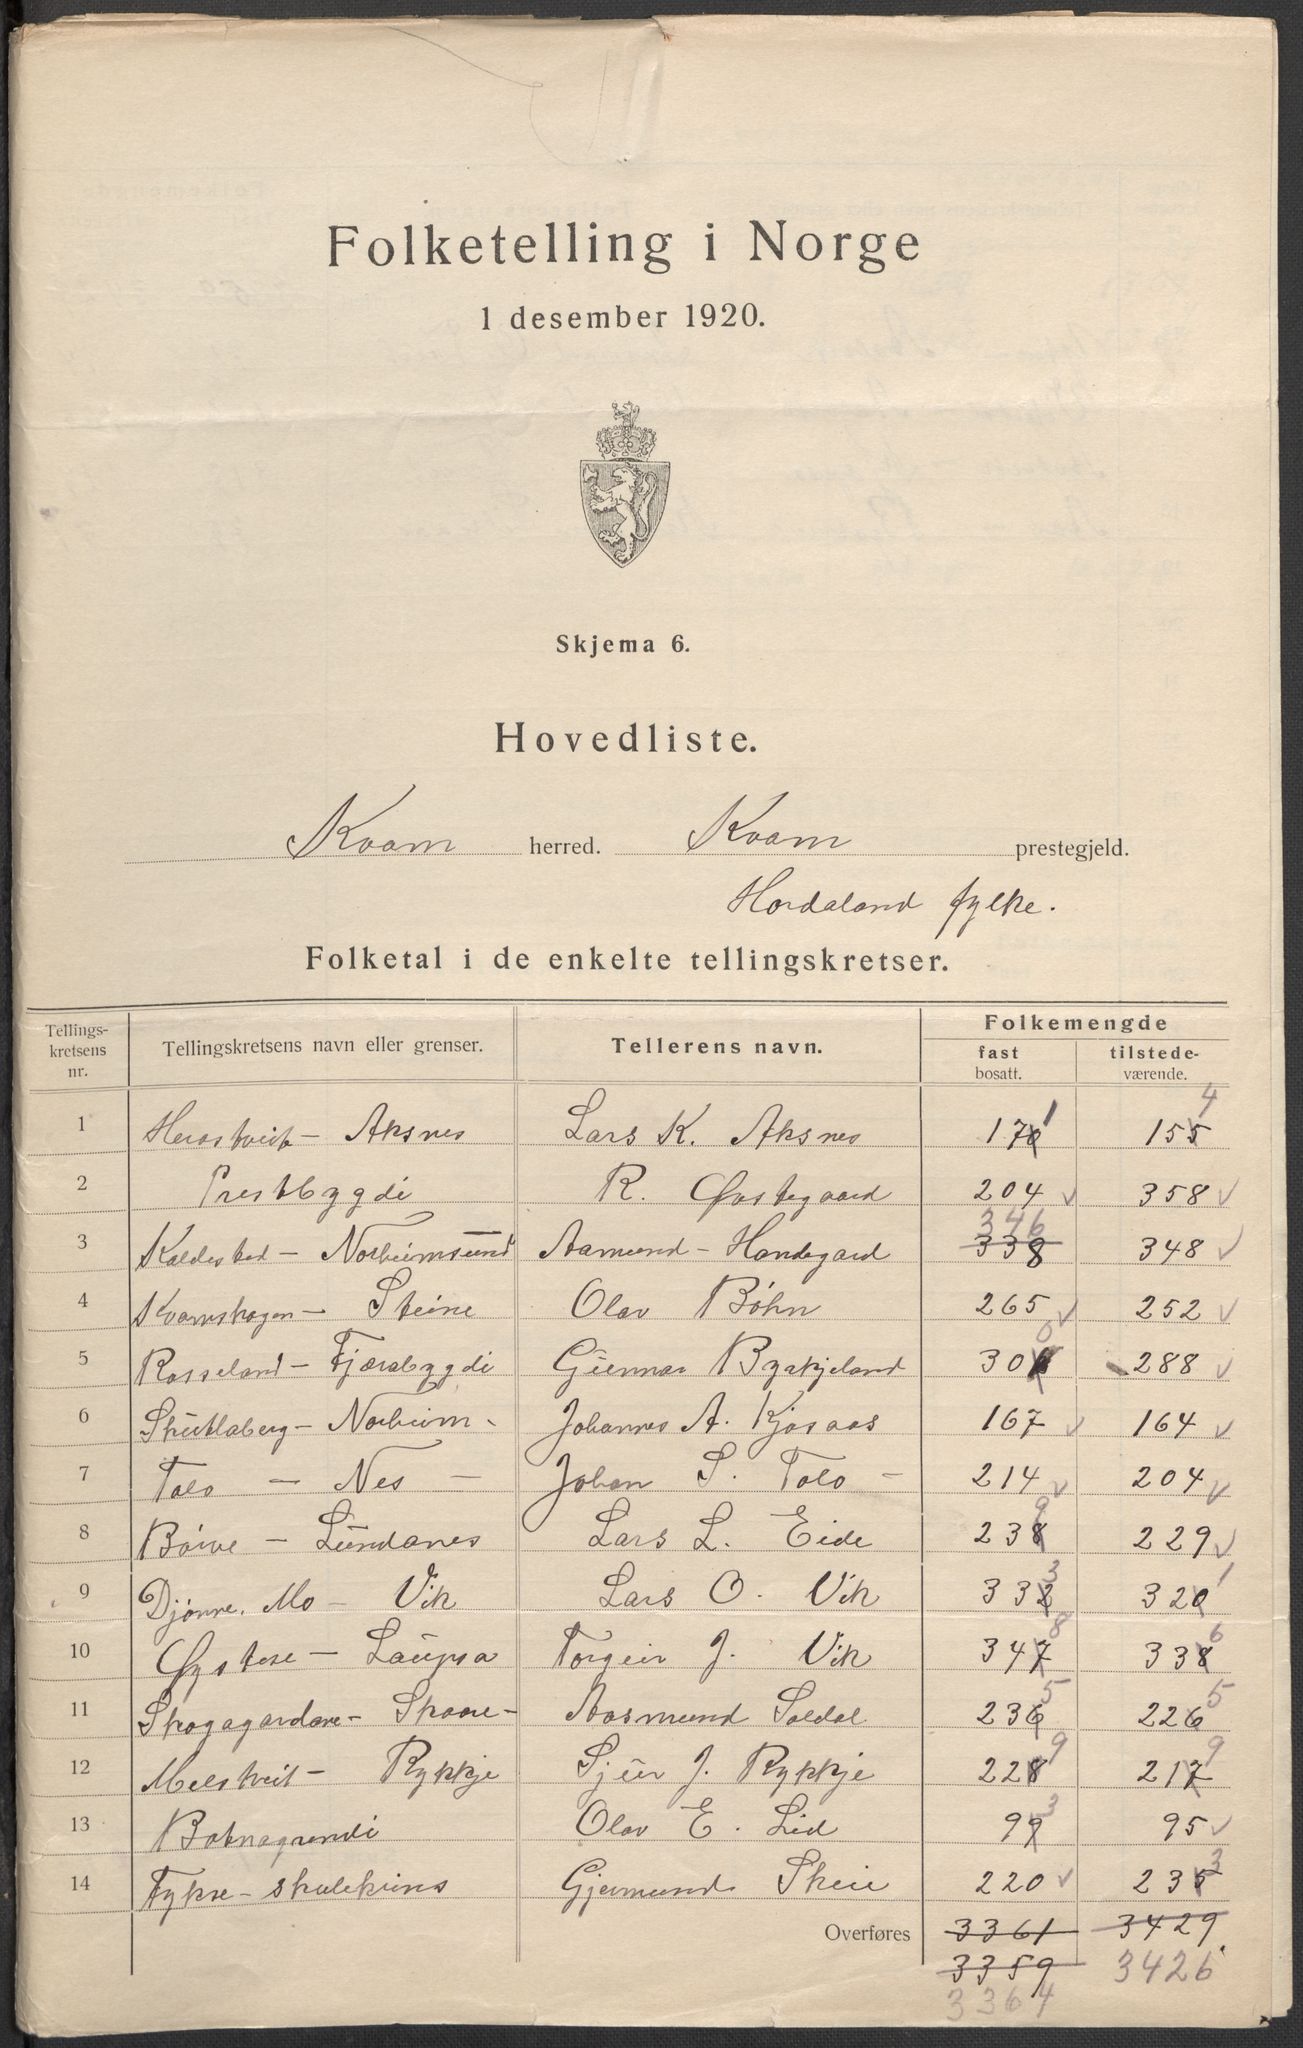 Folketelling i Norge
1 desember 1920.
Skjema 6.
Hovedliste.
Kvam herred. Kvam prestegjeld.
Hordaland fylke.
Folketal i de enkelte tellingskretser.
Tellings-kretsens nr. Tellingskretsens navn eller grenser. Tellerens navn. Folkemengde
fast bosatt. tilstede-værende.
1 Herastveit - Aksnes Lars K. Aksnes 170 1 155 4
2 Prestbygdi R. Øvstegaard 204 358
3 Kaldestad - Norheimsund Aamund - Handegard 338 346 348
4 Kvamskogen - Steine Olav Bøhn 265 252
5 Rosseland - Fjærabygdi Gunnar Byrkjeland 301 0 288
6 Skutlaberg - Norheim - Johannes A. Kjosaas 167 164
7 Tolo - Nes - Johan S. Tolo - 214 204
8 Børve - Lundanes Lars L. Eide 238 9 229
9 Djønne, Mo - Vik Lars O. Vik 332 3 320 1
10 Øystese - Laupsa Torgeir J. Vik 347 8 338 6
11 Skogagardane - Skaare - Aasmund Soldal 236 5 226 5
12 Melstveit - Rykkje Sjur J. Rykkje 228 9 217 9
13 Botnagrendi Olav E. Lid 99 3 95
14 Fykse - skulekrins Gjermund Skeie 220 235 3
Overføres 3361 3429
3359 3426
3364